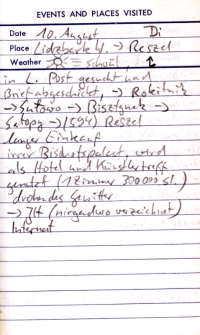 EVENTS AND PLACES VISITED
Date 10. August Di
Place Lidzbark W. -> Reszel
Weather = schön,
in L. Post gesucht und
Brief abgeschickt, -> Rokitnik
-> Lutowo -> Bisztynek ->
Satopy -> (594) Reszel
langer Einkauf
irrer Bischofspalast, wird
als Hotel und Künstlertreff
genutzt (1 Zimmer 300000 zl.)
drohendes Gewitter
-> JH (nirgendwo verzeichnet)
Internat